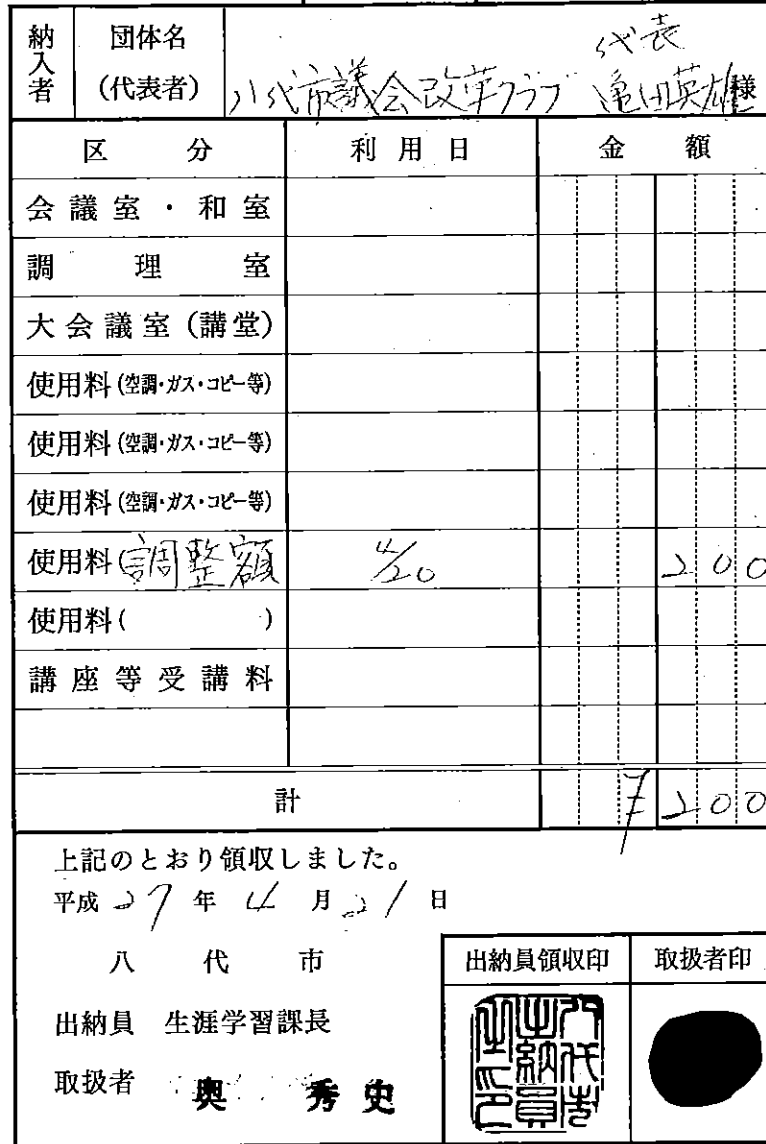 納入者 団体名(代表者) 八代市議会改革クラブ 代表 亀田英雄 様
区分 利用日 金額
会議室・和室
調理室
大会議室(講堂)
使用料(空調・ガス・コピー等)
使用料(空調・ガス・コピー等)
使用料(空調・ガス・コピー等)
使用料(調整額 4/20 200
使用料( )
講座等受講料
計 ¥200
上記のとおり領収しました。
平成27年4月21日
八代市 出納員領収印 取扱者印
出納員 生涯学習課長
取扱者 奥 秀史
八代市出納員之印